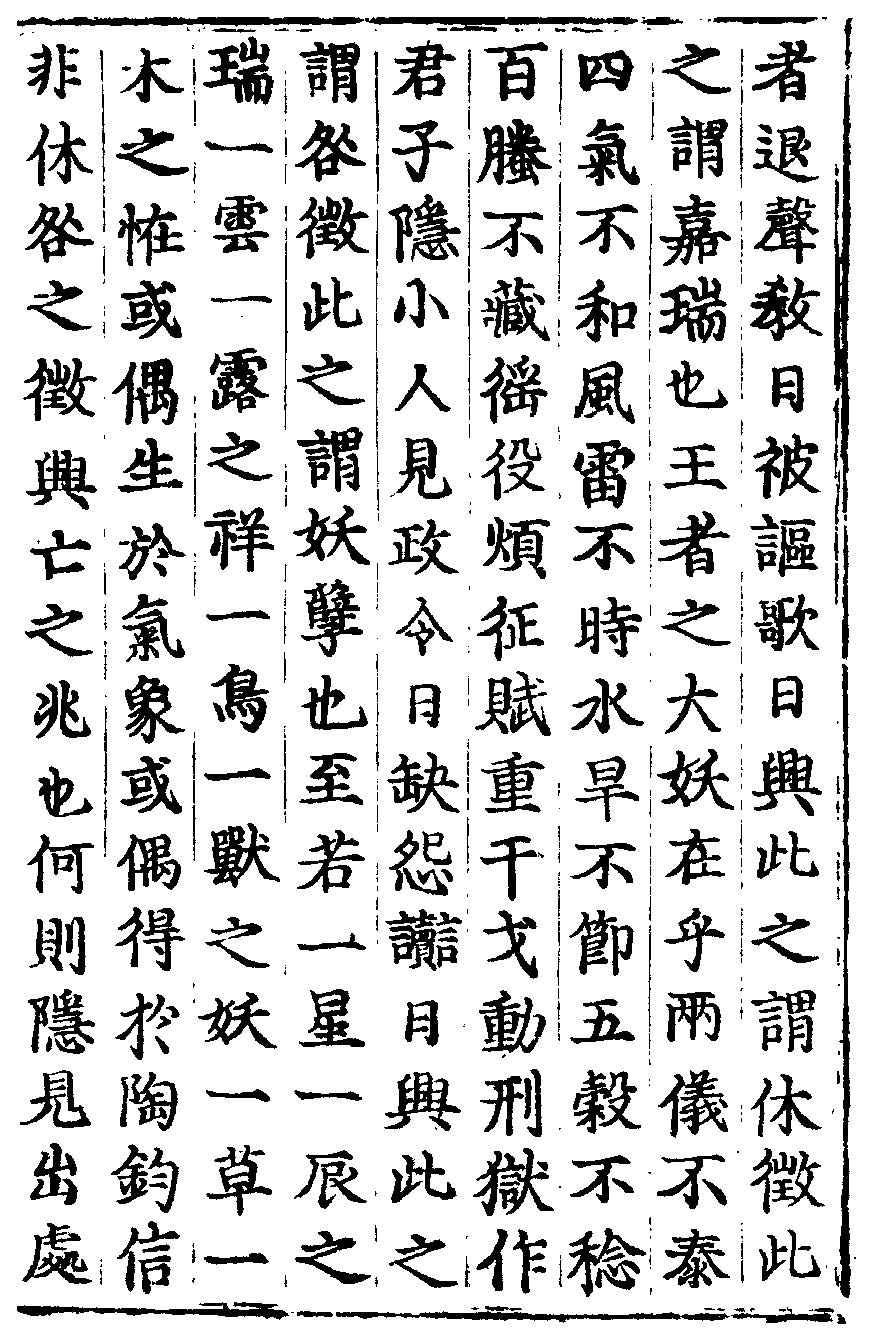 者退聲教日被謳歌日興此之謂休徵此
之謂嘉瑞也王者之大妖在乎兩儀不泰
四氣不和風雷不時水旱不節五穀不稔
百螣不藏徭役煩征賦重干戈動刑獄作
君子隱小人見政令日缺怨讟日興此之
謂咎徵此之謂妖孽也至若一星一辰之
瑞一雲一露之祥一鳥一獸之妖一草一
木之恠或偶生於氣象或偶得於陶鈞信
非休咎之徵興亡之兆也何則隱見出處